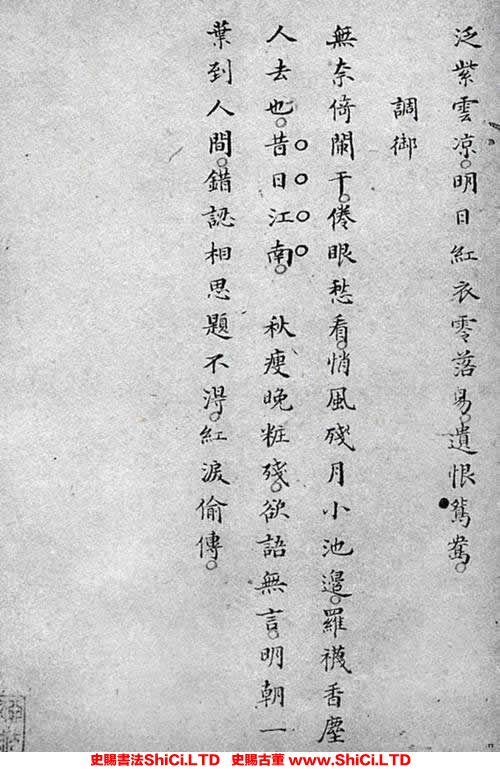 泛紫雲凉。明日紅衣零落易。遺恨鴛鴦。
調御
無奈倚闌干。倦眼愁看。悄風殘月小池邊。羅襪香塵
人去也。昔日江南。　秋瘦晚粧殘。欲語無言。明朝一
葉到人間。錯認相思題不得。紅淚偷傳。
史賜書法ShiCi.LTD　史賜古董 www.ShiCi.LTD